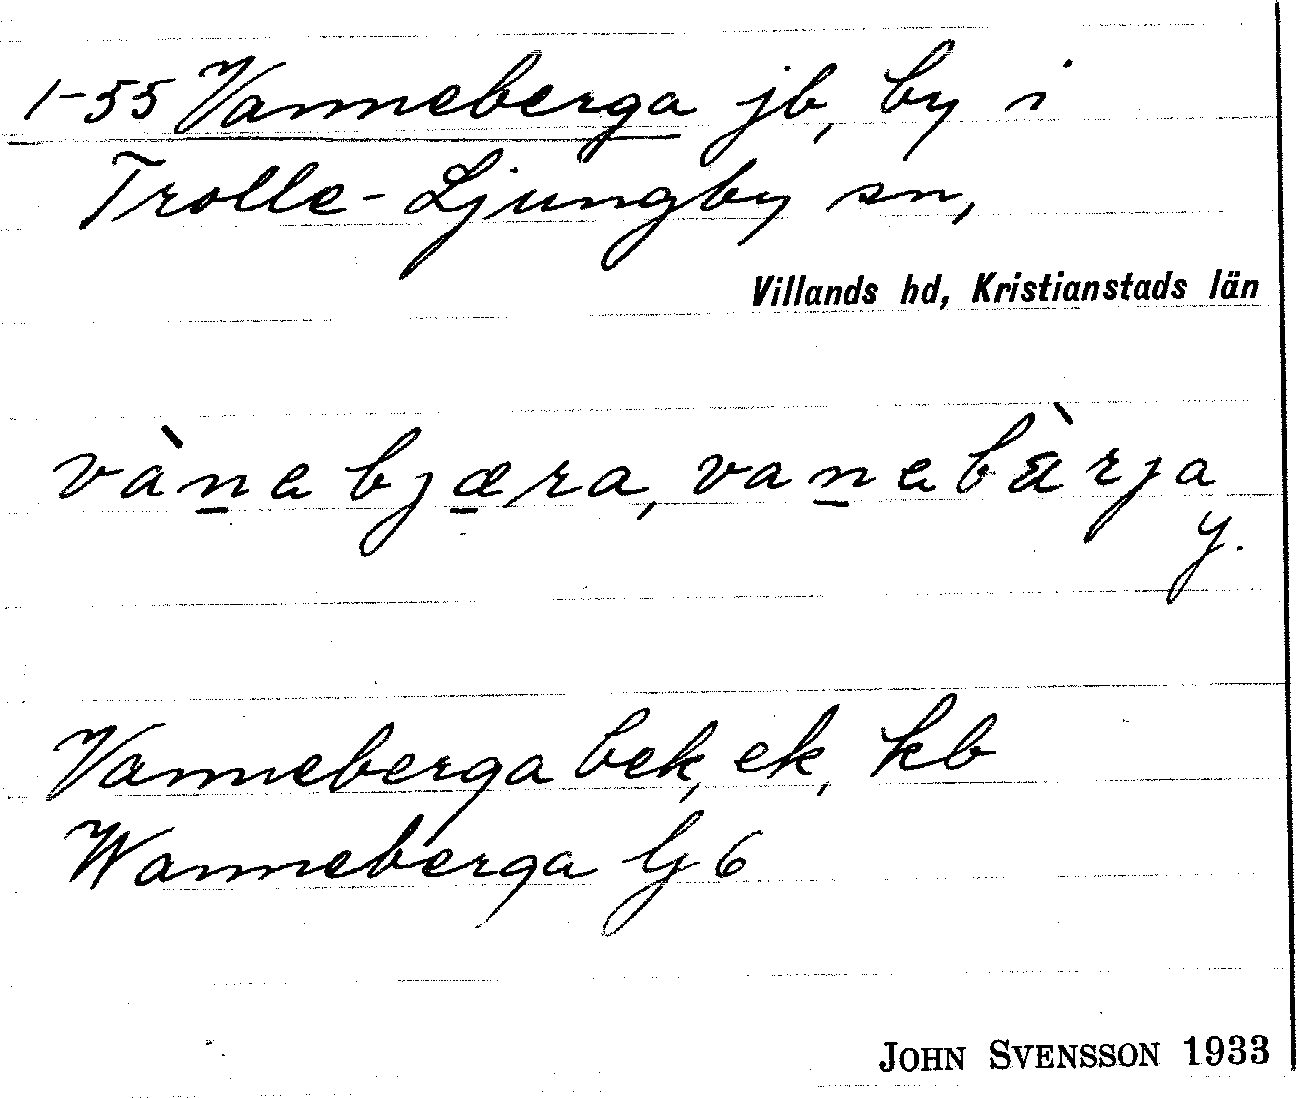 1-55 Vanneberga jb, by i
Trolle-Ljungby sn,
Villands hd, Kristianstads län
vàn̠ebjæ̠ra, van̠ebàrja
y.
Vanneberga bek, ek, kb
Wanneberga G 6
JOHN SVENSSON 1933